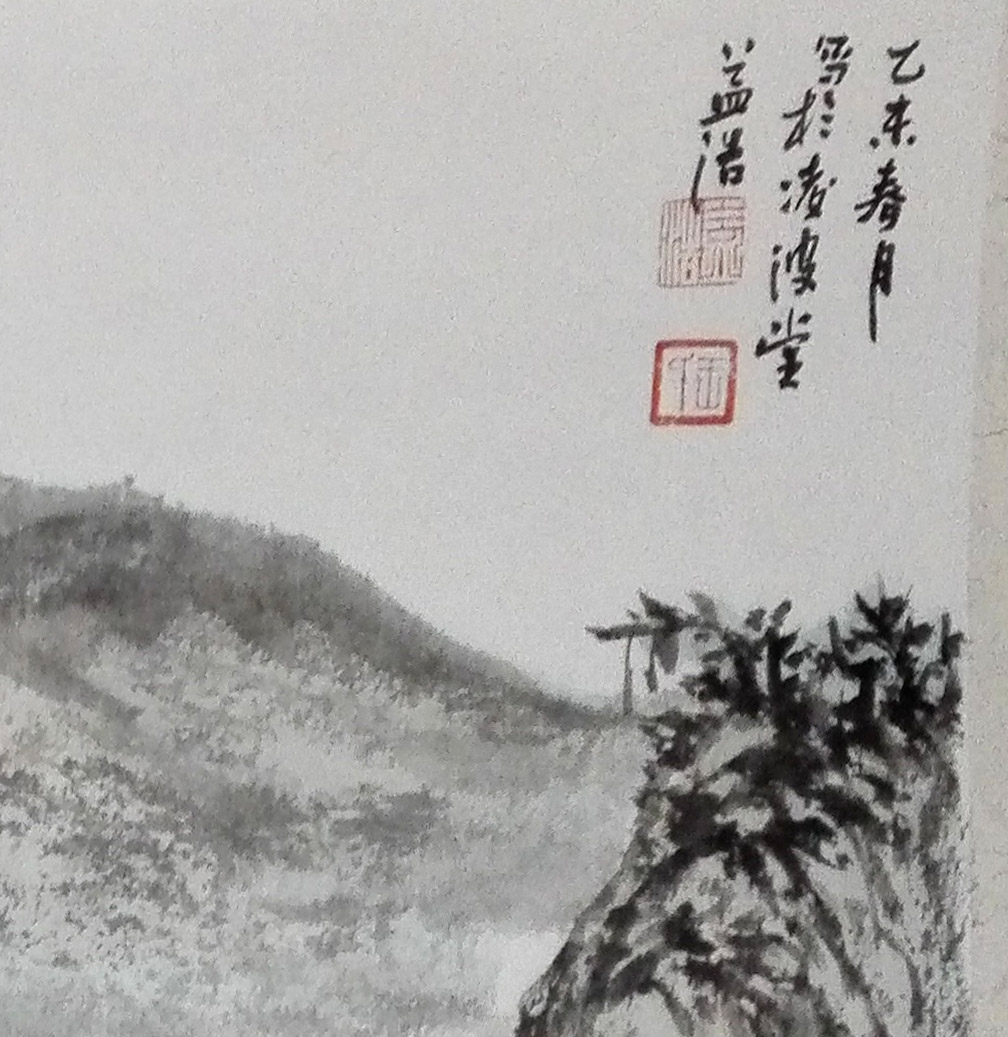 乙未春月
寫於凌波堂
益浩